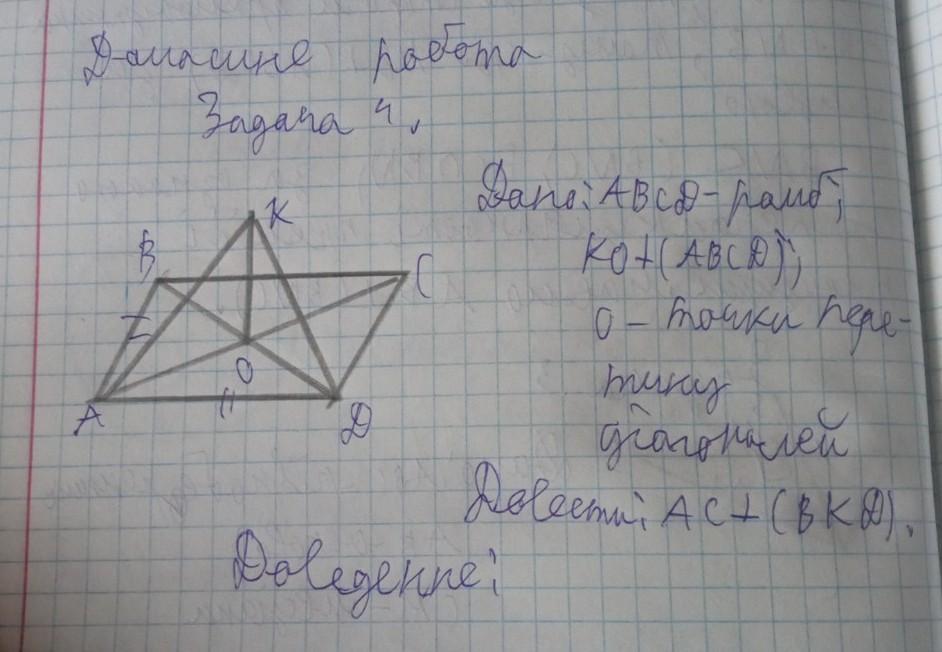 Домашнє работа
Задача 4.
Дано: ABCD - ромб;
KO⊥(ABCD);
O - точки пере-
тину
діагоналей
Довести: AC⊥(BKD).
Доведення:
K
B
C
O
A
D